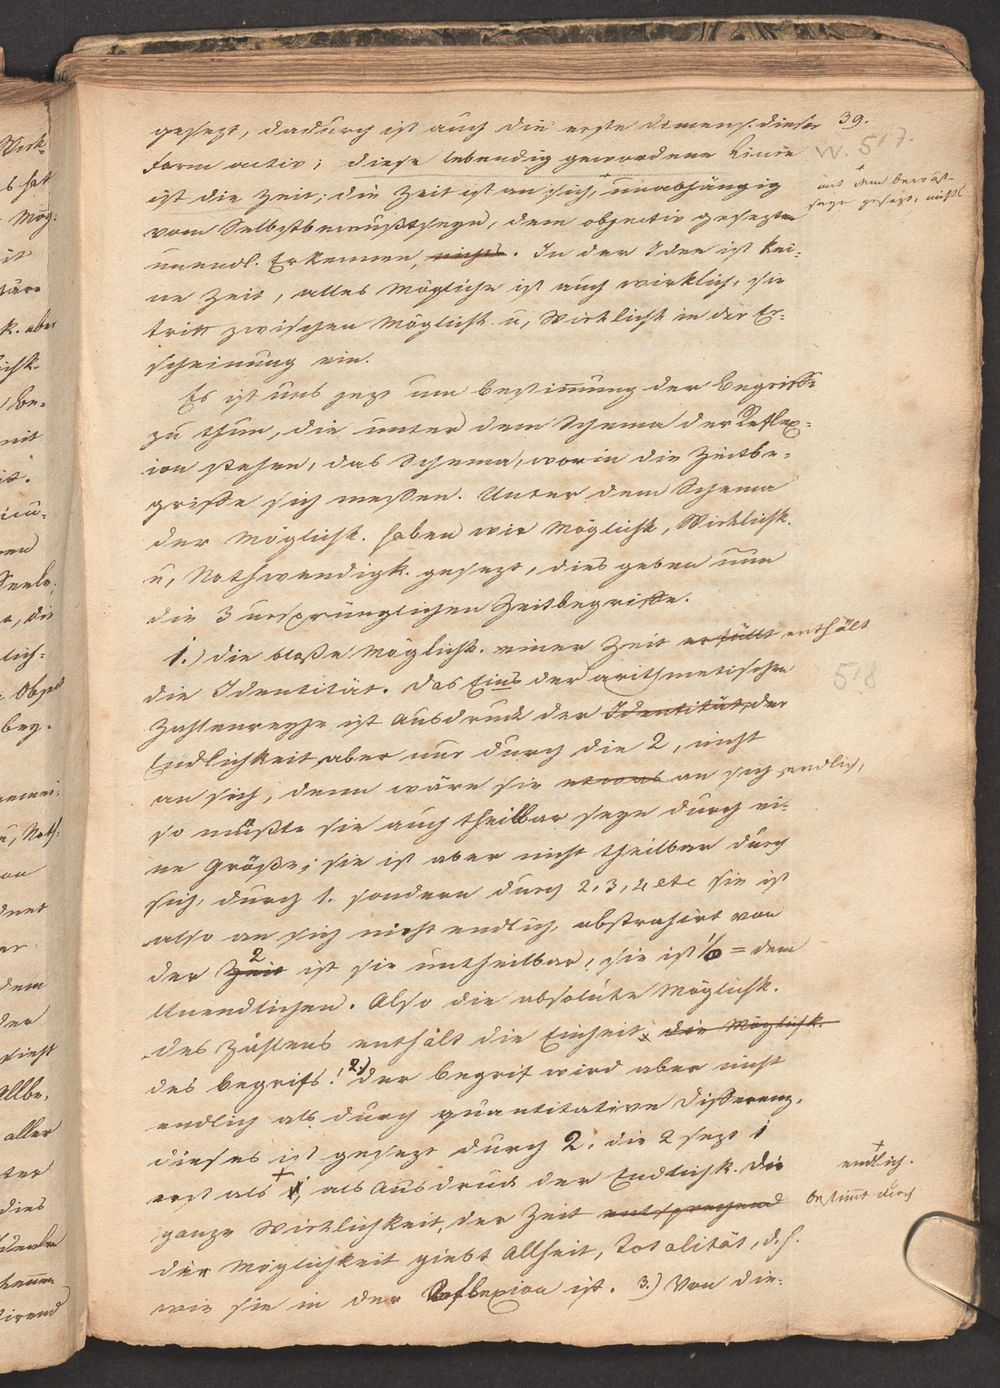 39.
gesezt, dadurch ist auch die erste dimens. dieser
Form activ; diese lebendig gewordene Linie
W. 517.
ist die Zeit; die Zeit ist an sich, unabhängig
mit dem bewußt-
seyn gesezt, nichts
vom Selbstbewußtseyn, dem objectiv gesezten
unendl. Erkennen, nichts. In der Idee ist kei-
ne Zeit, alles Mögliche ist auch wirklich, sie
tritt zwischen Möglichk. u, Wirklichk in der Er-
scheinung ein.
Es ist uns jezt um Bestimmung der Begriffe
zu thun, die unter dem Schema der Reflex-
ion stehen, das Schema, worin die Zeitbe-
griffe sich messen. Unter dem Schema
der Möglichk. haben wir Möglichk, Wirklichk.
u, Nothwendigk. gesezt, dies geben nun
die 3 ursprünglichen Zeitbegriffe.
1.) die bloße Möglichk. einer Zeit erfüllt enthält
die Identität. Das Eins der arithmetischen
518
Zahlenreyhe ist Ausdruck der Identität, der
Endlichkeit, aber nur durch die 2, nicht
an sich, denn wäre sie etwas an sich endlich,
so müßte sie auch theilbar seyn durch ei-
ne Größe; sie ist aber nicht theilbar durch
sich, durch 1. sondern durch 2, 3, 4 etc sie ist
also an sich nicht endlich, abstrahirt von
der Zeit 2 ist sie untheilbar, sie ist 1/0 = dem
Unendlichen. Also die absolute Möglichk.
des Zählens enthält die Einheit, die Möglichk.
des Begrifs! 2.) der Begrif wird aber nicht
endlich als durch quantitative Differenz.
dieses ist gesezt durch 2, die 2 sezt 1
erst als + 1, als Ausdruck der Endlichk. Die
+ endlich.
ganze Wirklichkeit, der Zeit entsprechend
bestimmt durch
der Möglichkeit giebt Allheit, Totalität, d. h.
wie sie in der Reflexion ist. 3.) Von die-